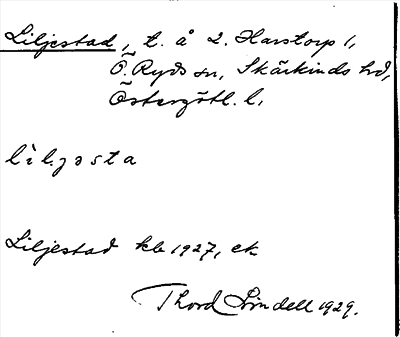 Liljestad, t. å 2. Harstorp 1,
Ö. Ryds sn, Skärkinds hd,
Östergötl. l.
lìljəsta
Liljestad kb 1927, ek
Thord Lindell 1929.